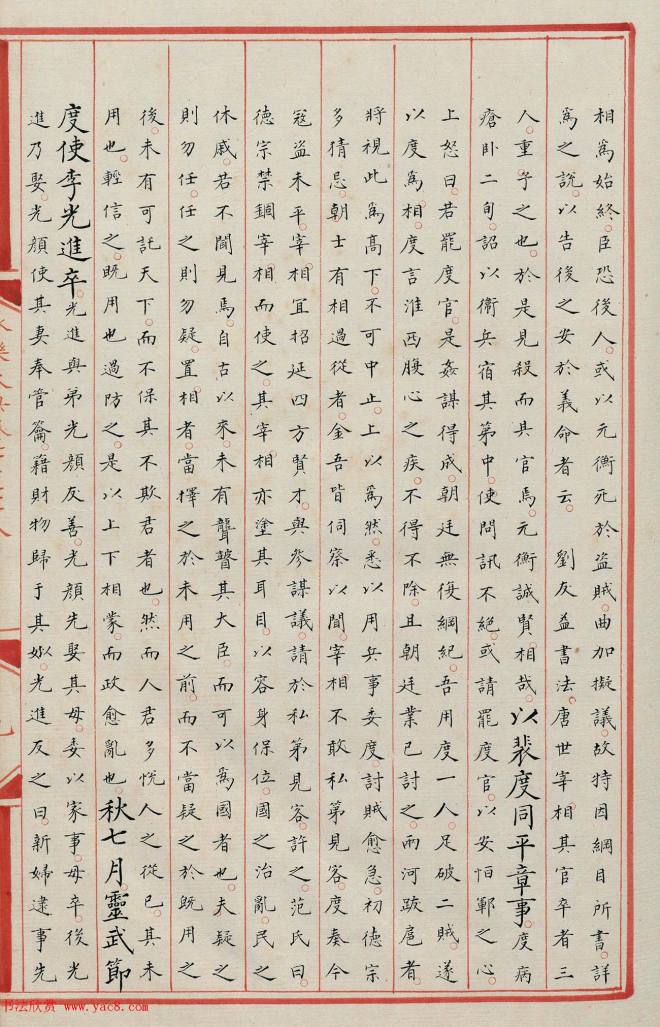 相爲始終臣恐後人或以元衡死於盜賊曲加擬議故特因綱目所書詳
爲之說以告後之安於義命者云　劉友益書法唐世宰相其官卒者三
人重予之也於是見殺而其官焉元衡誠賢相哉以裴度同平章事度病
瘡卧二旬詔以衞兵宿其第中使問訊不絕或請罷度官以安恒鄆之心
上怒曰若罷度官是姦謀得成朝廷無復綱紀吾用度一人足破二賊遂
以度爲相度言淮西腹心之疾不得不除且朝廷業已討之兩河跋扈者
將視此爲高下不可中止上以爲然悉以用兵事委度討賊愈急初德宗
多猜忌朝士有相過從者金吾皆伺察以聞宰相不敢私第見客度奏今
寇盜未平宰相宜招延四方賢才與參謀議請於私第見客許之范氏曰
德宗禁錮宰相而使之其宰相亦塗其耳目以容身保位國之治亂民之
休戚若不聞見焉自古以來未有聾瞽其大臣而可以爲國者也夫疑之
則勿任任之則勿疑置相者當擇之於未用之前而不當疑之於既用之
後未有可託天下而不保其不欺君者也然而人君多悅人之從已其未
用也輕信之既用也過防之是以上下相蒙而政愈亂也秋七月靈武節
度使李光進卒光進與弟光顏友善光顏先娶其母委以家事母卒後光
進乃娶光顏使其妻奉管籥籍財物歸于其姒光進反之曰新婦逮事先
书法欣赏 www.yac8.com